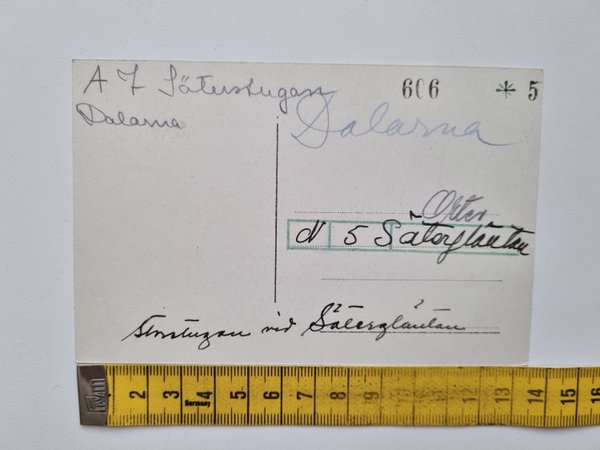 A 7 Säterstugan
Dalarna
606 * 5
Dalarna
Orter
N 5 Sätergläntan
storstugan vid Sätergläntan
2 3 4 5 6 7 8 9 10 11 12 13 14 15 16
Germany